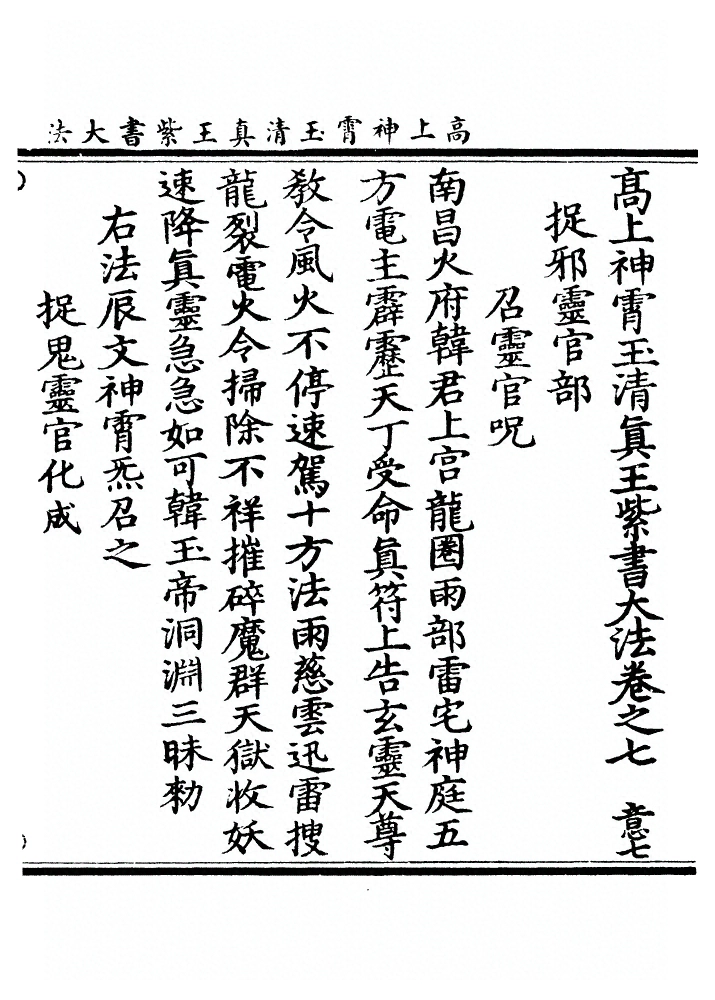 高上神霄玉清真王紫書大法
高上神霄玉清眞王紫書大法卷之七　意七
捉邪靈官部
召靈官呪
南昌火府韓君上宫龍圈雨部雷宅神庭五
方電主霹靂天丁受命眞符上告玄靈天尊
敎令風火不停速駕十方法雨慈雲迅雷搜
龍裂電火令掃除不祥摧碎魔群天獄收妖
速降眞靈急急如可韓玉帝洞淵三昧勑
右法辰文神霄炁召之
捉鬼靈官化成